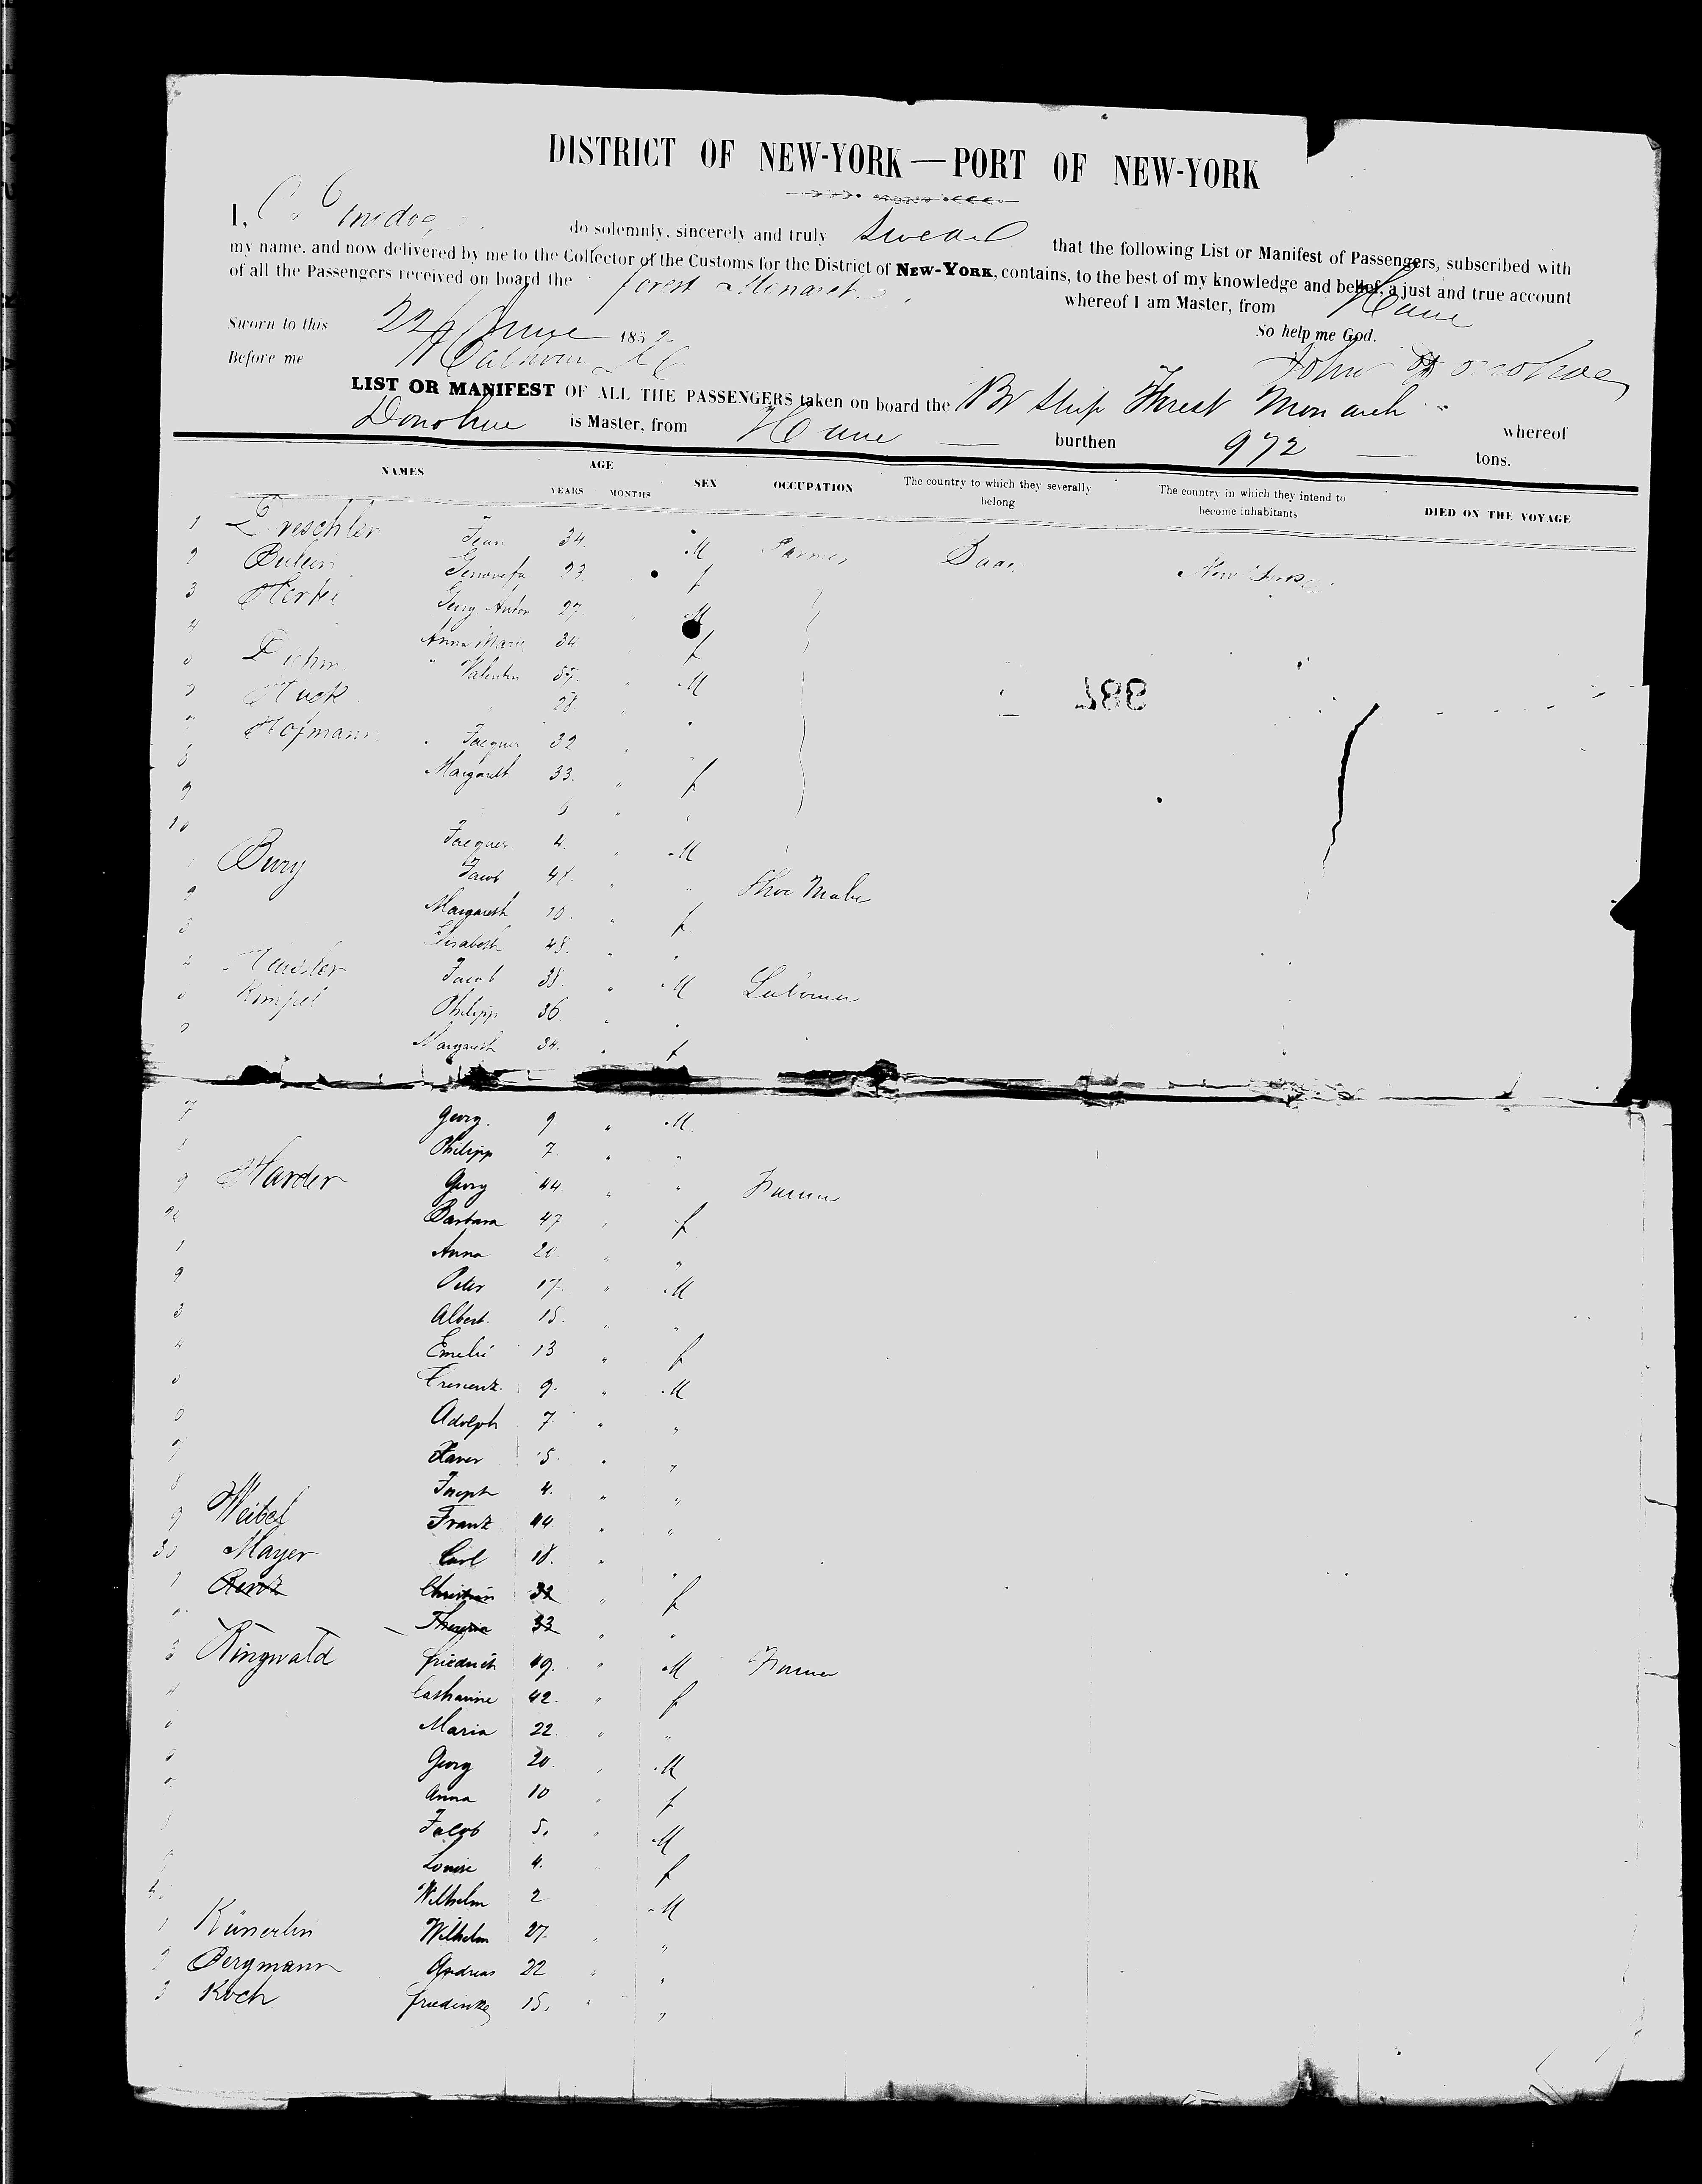 DISTRICT OF NEW-YORK — PORT OF NEW-YORK
I, do solemnly, sincerely and truly Swear that the following List or Manifest of Passengers, subscribed with
my name, and now delivered by me to the Collector of the Customs for the District of NEW-YORK, contains, to the best of my knowledge and belief, a just and true account
of all the Passengers received on board the Forest Monarch whereof I am Master, from Havre
Sworn to this 22 June 1852 So help me God.
Before me John Donohue
LIST OR MANIFEST OF ALL THE PASSENGERS taken on board the Br Ship Forest Monarch whereof
Donohue is Master, from Havre — burthen 972 — tons.
NAMES AGE YEARS MONTHS SEX OCCUPATION The country to which they severally belong The country in which they intend to become inhabitants DIED ON THE VOYAGE
1 Dreschler Jean 34. M Farmer
2 Genovefa 23 f
3 Georg Anton 27 M
4 Anna Marie 34 f
Valentin 57. M
Huck " 28
Hofmann Jacques 32
8 Margareth 33. f
9
10 Jacques 4. M
Bury Jacob 41.
Shoe Maker
2 Margareth 10. f
3 Elisabeth 48.
4 Jacob 38. M Labourer
Kimpel Philipp 36.
Margareth 34. f
7 Georg. 9 " M
8 Philipp 7 " "
9 Harder Georg 44 " " Farmer
Barbara 47 " f
1 Anna 20. " "
2 Peter 17. " M
3 Albert. 15. " "
4 Emelie 13 " f
Cresenz. 9. " M
Adolph 7. " "
7 Xaver 5. " "
8 Joseph 4. " "
9 Weibel Franz 44 " "
30 Mayer Carl 18. " "
1 Renz Christian 32 " f
Theresia 33 " "
3 Ringwald friedrich 49. " M Farmer
4 Catharine 42. " f
Maria 22. " "
Georg 20. " M
Anna 10 " f
Jacob 5. " M
Louise 4. f
Wilhelm 2 M
1 Künerlin Wilhelm 27. " "
2 Bergmann Andreas 22 " "
3 Koch 15. " "